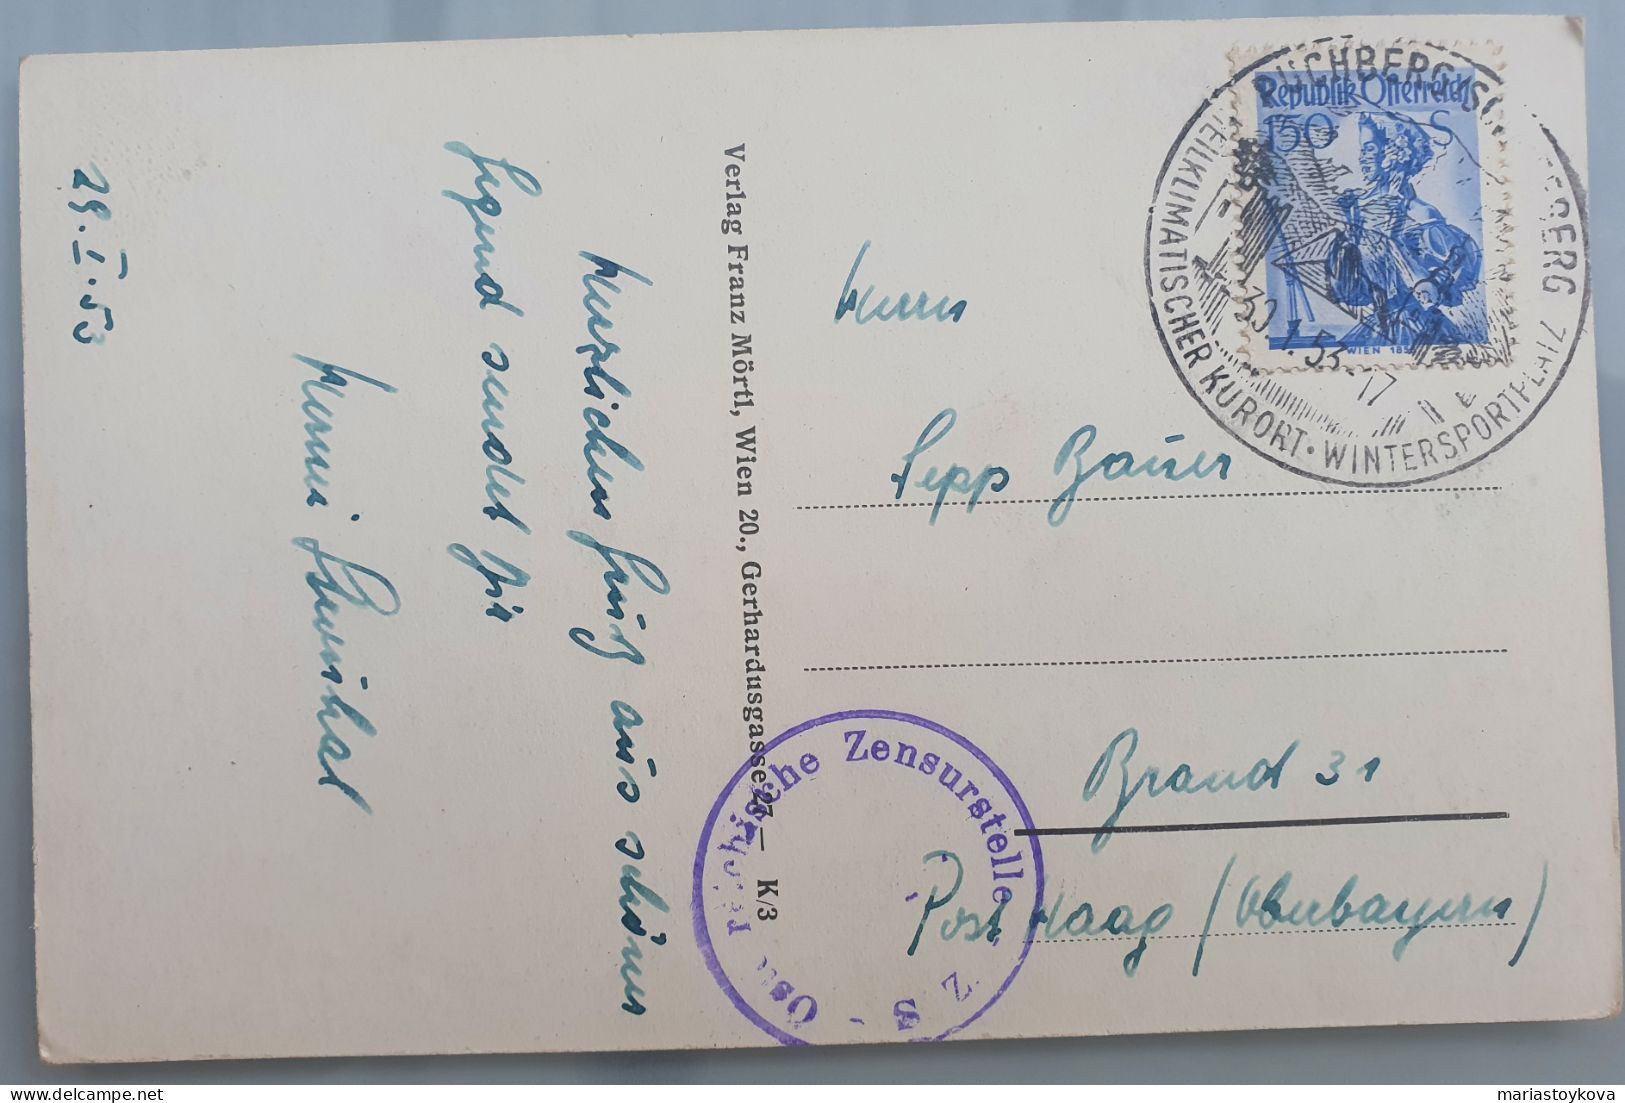 29. I. 53
Herzlichen Gruß aus schöner
Gegend sendet Dir
Verlag Franz Mörtl, Wien 20., Gerhardusgasse 27 — K/3
Republik Österreich
1 50 S
WIEN
PUCHBERG
HEILKLIMATISCHER KURORT · WINTERSPORTPLATZ
30. 1. 53. 17
Herrn
Sepp Bauer
Brand 31
Post Haag (Oberbayern)
Österreichische Zensurstelle
mariastoykova